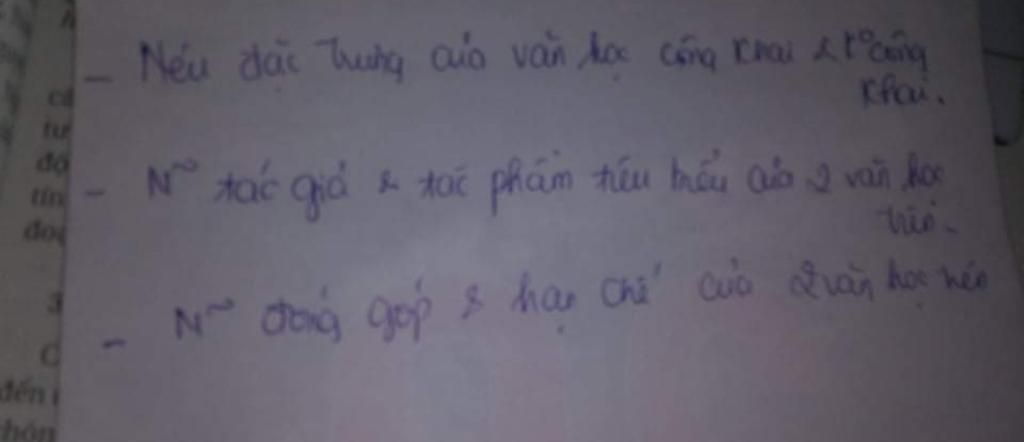 - Nêu đặc trưng của văn học công khai & k° công
khai.
- N~ tác giả & tác phẩm tiêu biểu của 2 văn học
trên.
- N~ đóng góp & hạn chế của 2 văn học trên
cá
tư
độ
tín
đoạ
3
C
đến